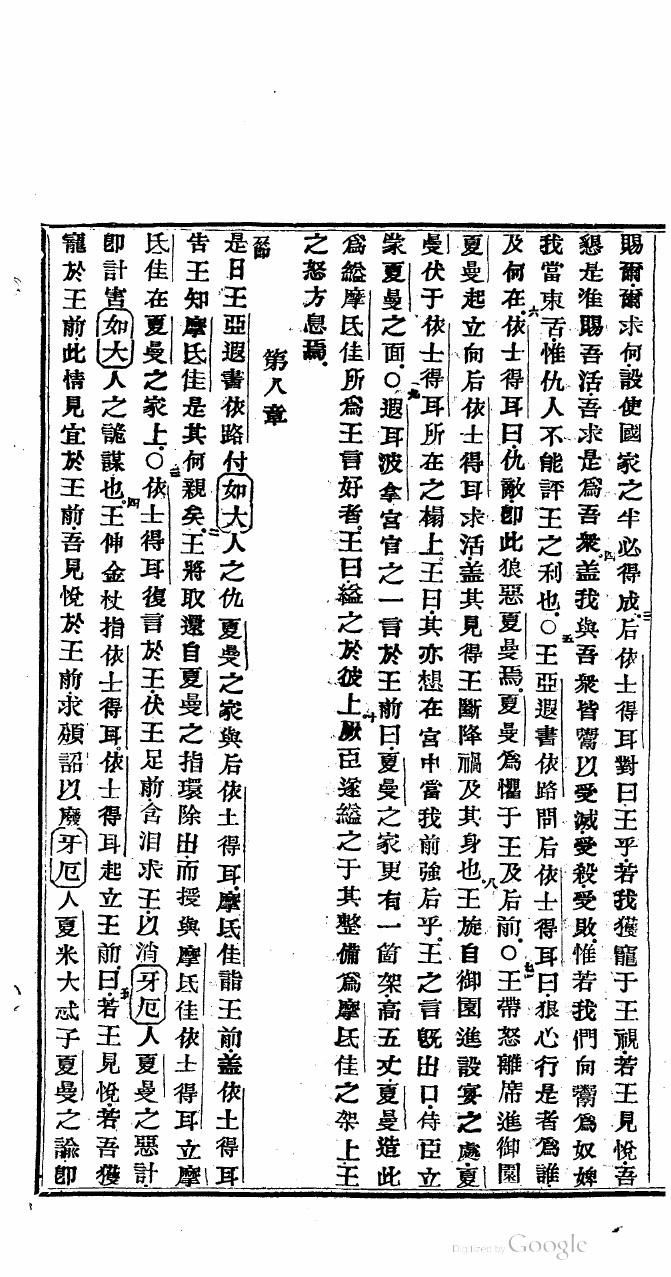 賜爾爾求何設使國家之半必得成三后依士得耳對曰王乎若我獲寵于王視若王見悅吾
懇是准賜吾活吾求是為吾衆四蓋我與吾衆皆鬻以受滅受殺受敗惟若我們向鬻為奴婢
我當束舌惟仇人不能評王之利也○五王亞遐書依路問后依士得耳曰狠心行是者為誰
及何在六依士得耳曰仇敵即此狼惡夏曼焉夏曼為懼于王及后前○七王帶怒離席進御園
夏曼起立向后依士得耳求活蓋其見得王斷降禍及其身也八王旋自御園進設宴之處夏
曼伏于依士得耳所在之榻上王曰其亦想在宮中當我前強后乎王之言既出口侍臣立
蒙夏曼之面○九遐耳波拿宮官之一言於王前曰夏曼之家更有一箇架高五丈夏曼造此
為縊摩氐佳所為王言好者王曰縊之於彼上十厥臣遂縊之于其整備為摩氐佳之架上王
之怒方息焉
第八章
一節
是日王亞遐書依路付如大人之仇夏曼之家與后依士得耳摩氐佳詣王前蓋依士得耳
告王知摩氐佳是其何親矣二王將取還自夏曼之指環除出而授與摩氐佳依士得耳立摩
氐佳在夏曼之家上○三依士得耳復言於王伏王足前含泪求王以消牙厄人夏曼之惡計
即計害如大人之詭謀也四王伸金杖指依士得耳依士得耳起立王前五曰若王見悅若吾獲
寵於王前此情見宜於王前吾見悅於王前求頒詔以廢牙厄人夏米大忒子夏曼之諭即
Digitized by Google